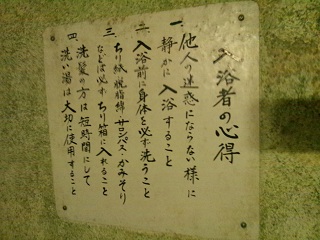 入浴者の心得
一、他人の迷惑にならない様に
静かに入浴すること
二、入浴前に身体を必ず洗うこと
三、ちり紙、脱脂綿、サロンパス・かみそり
などは必ずちり箱に入れること
四、洗髪の方は短時間にして
洗い湯は大切に使用すること